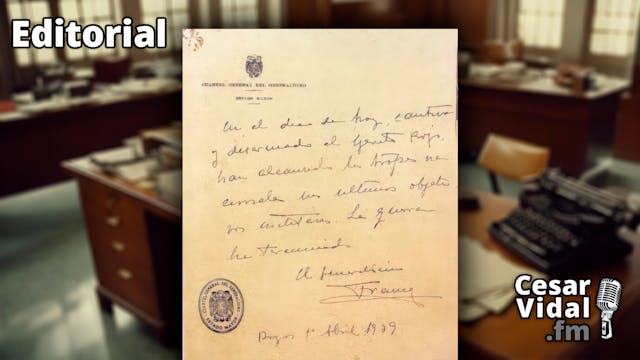 Editorial
CUARTEL GENERAL DEL GENERALISIMO
ESTADO MAYOR
En el dia de hoy, cautivo
y desarmado el Ejército Rojo,
han alcanzado las tropas na
cionales sus ultimos objeti
vos militares. La guerra
ha terminado
El Generalisimo
Franco
Burgos 1º Abril 1939
CUARTEL GENERAL DEL GENERALISIMO
ESTADO MAYOR
Cesar
Vidal
.fm